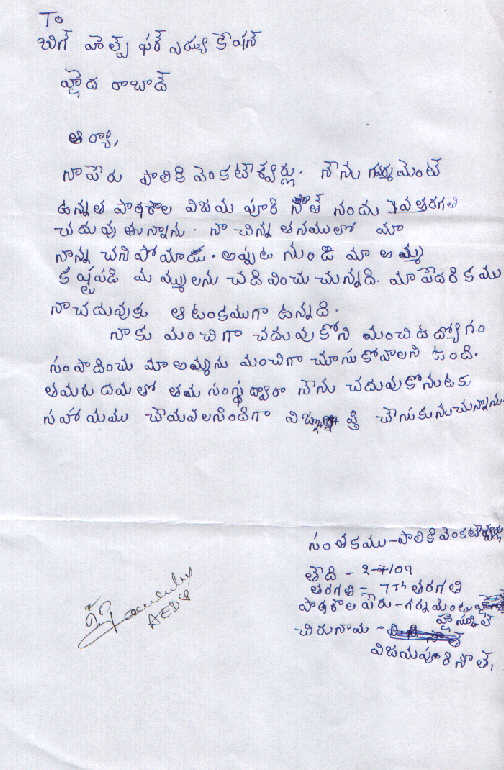 To
బిగ్ హెల్ప్ ఫర్ ఎడ్యు కేషన్
హైద రాబాద్
ఆర్యా,
నాపేరు పాలికి వెంకటేశ్వర్లు. నేను గవర్నమెంట్
ఉన్నత పాఠశాల విజయ పూరి సౌత్ నందు 7వ తరగతి
చదువు తున్నాను. నా చిన్న తనములో మా
నాన్న చని పోయాడు. అప్పట నుండి మా అమ్మ
కష్టపడి మ మ్ములను చది వించు చున్నది. మా పేదరికము
నాచదువుకు ఆటంకముగా ఉన్నది.
నాకు మంచిగా చదువుకోని మంచి ఉద్యోగం
సంపాదించు మా అమ్మను మంచిగా చూసుకోవాలని ఉంది.
తమరు దయతో తమ సంస్థ ద్వారా నేను చదువుకొనుటకు
సహాయము చేయవలసిందిగా విజ్ఞప్తి చేసుకునుచున్నాను
సంతకము - పాలికి వెంకటేశ్వర్లు
తేది - 2-7/07
తరగతి - 7th తరగతి
పాఠశాల పేరు - గవర్నమెంటు
హైస్కూల్
చిరునామ -
విజయపూరి సౌత్.
AEDIP